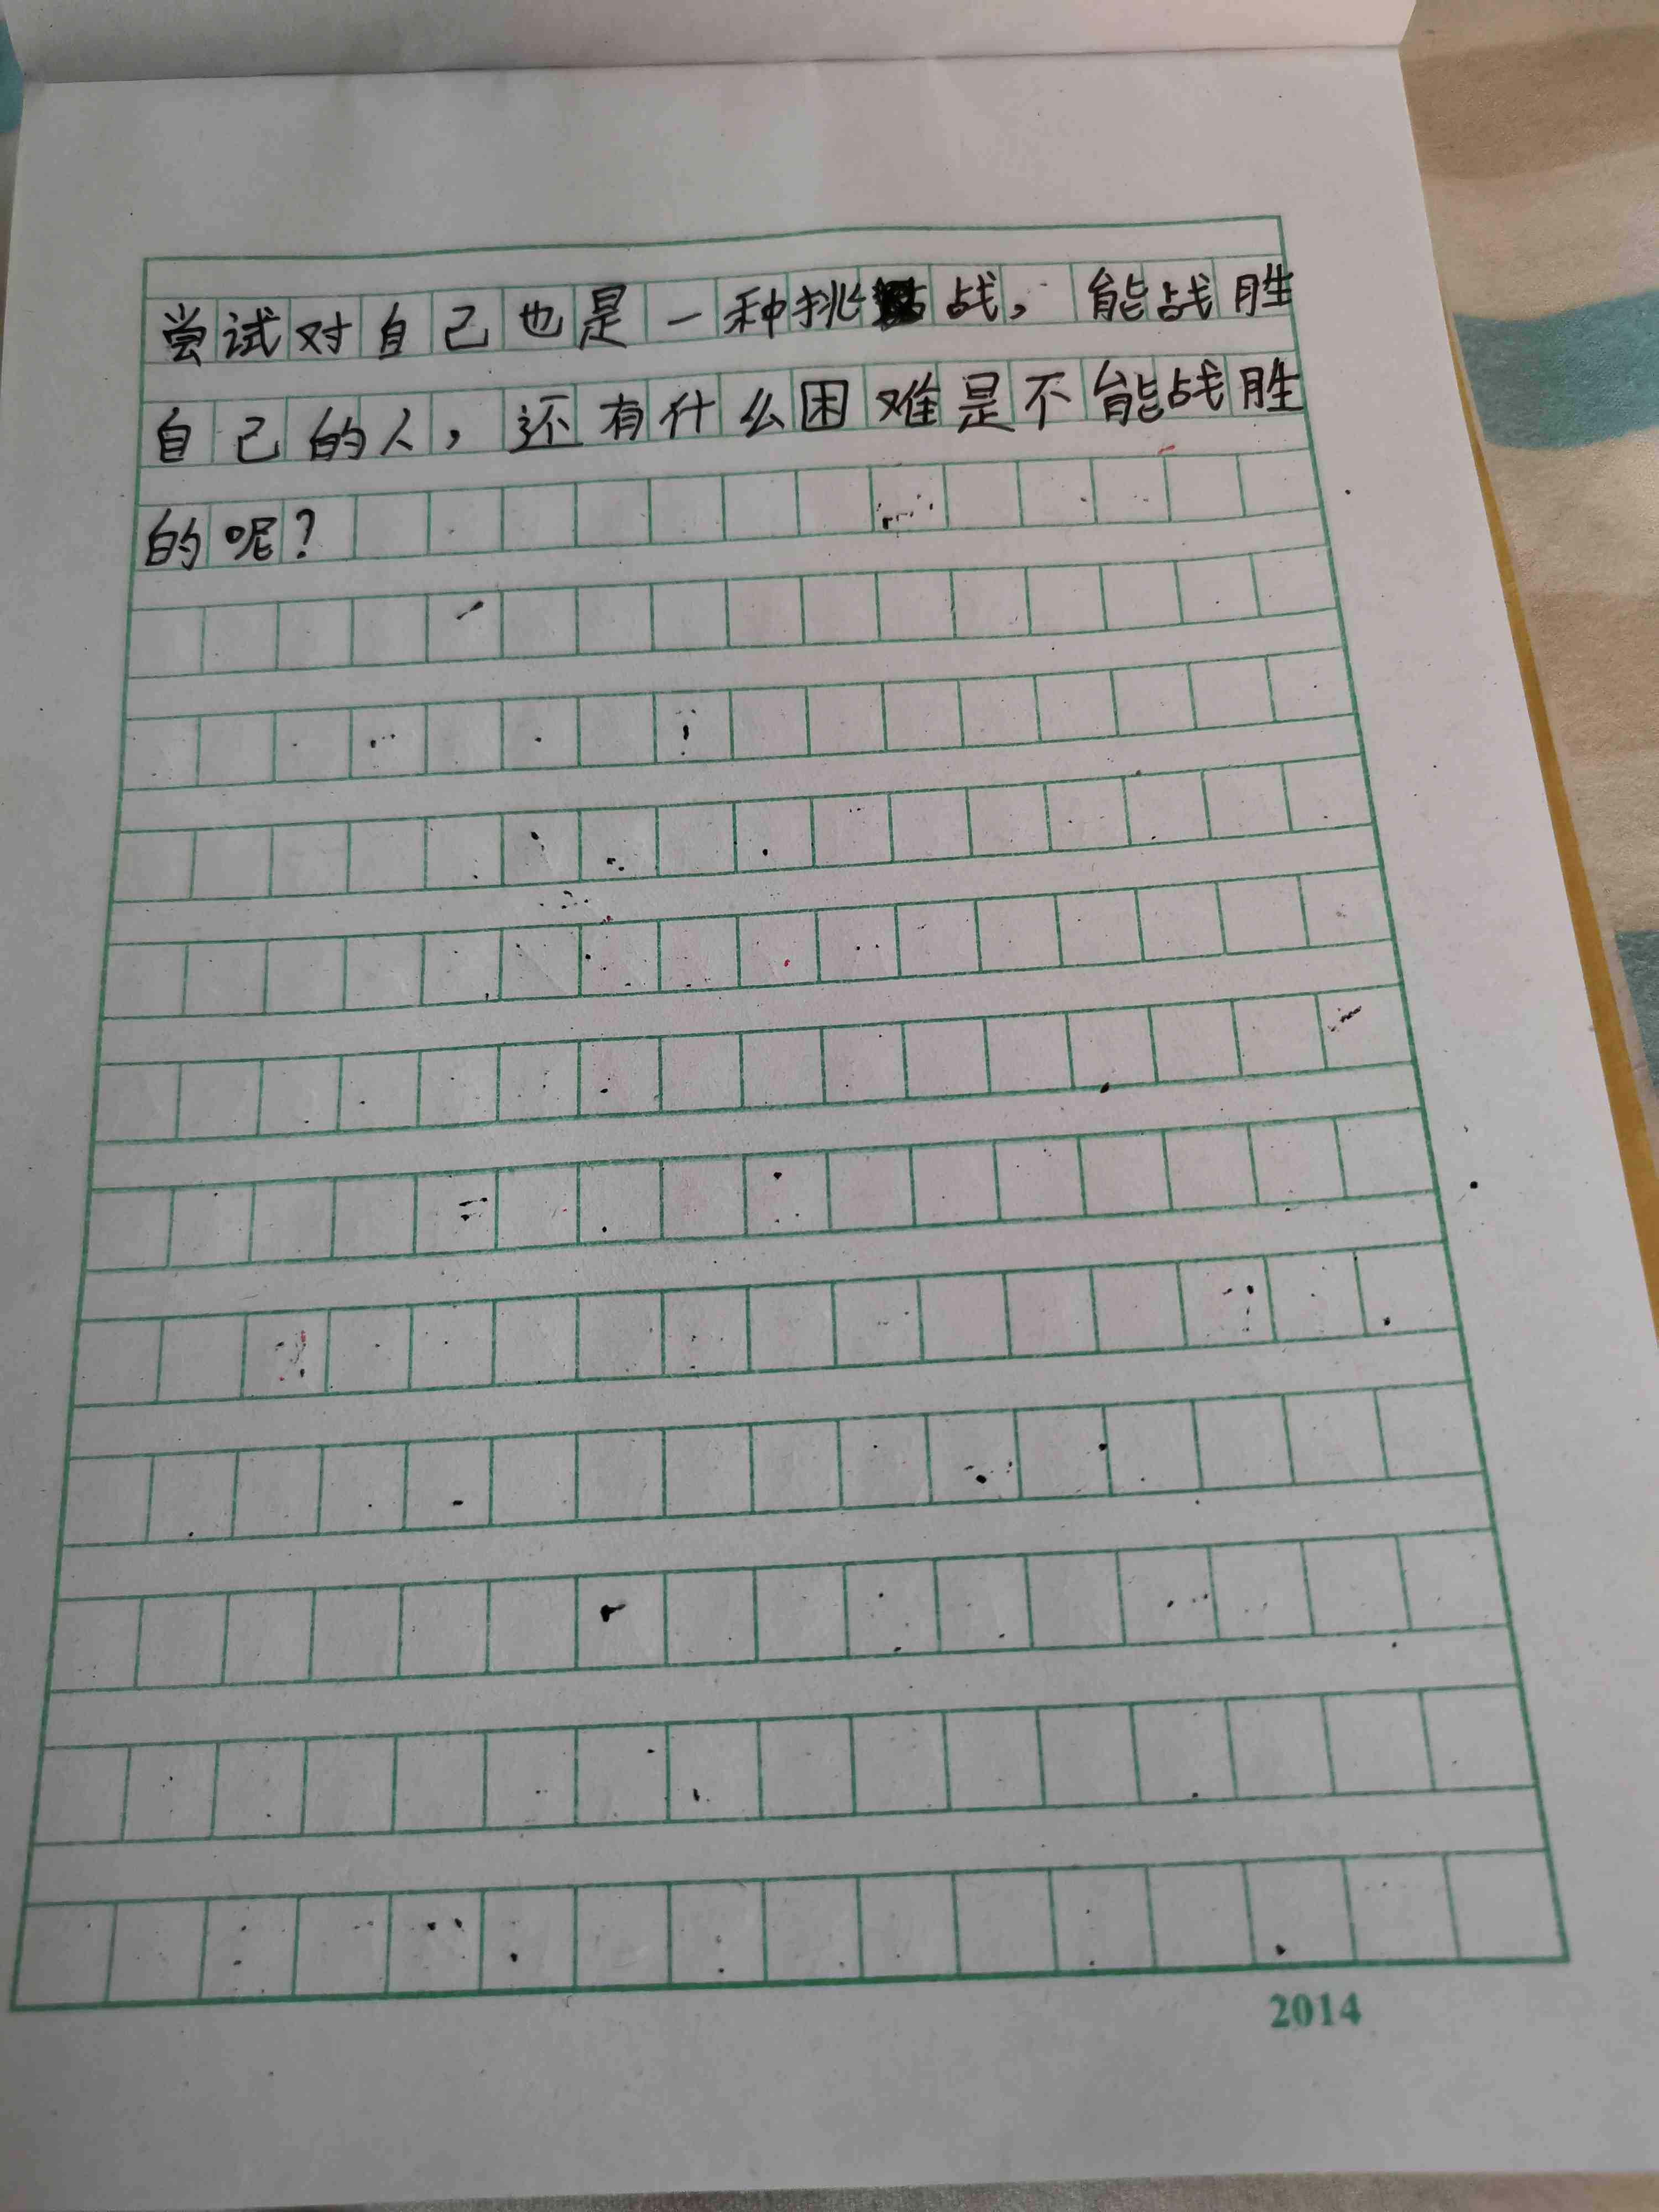 尝试对自己也是一种挑战，能战胜
自己的人，还有什么困难是不能战胜
的呢？
2014